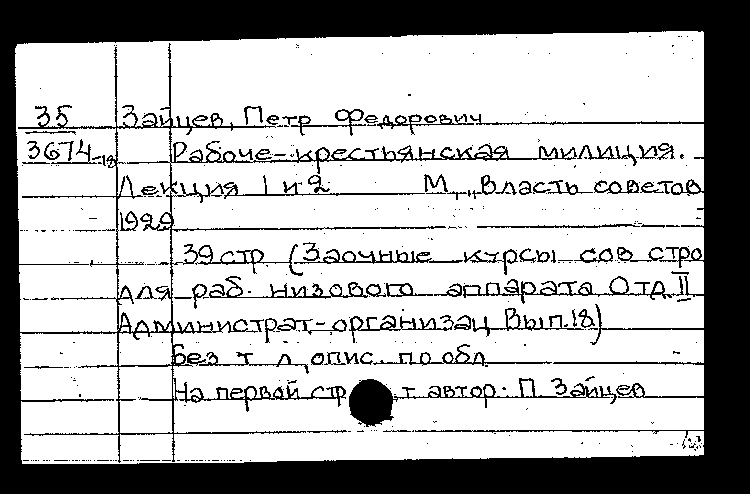 35 Зайцев, Петр Федорович
3674-18 Рабоче-крестьянская милиция.
Лекция 1 и 2 М., „Власть советов
1929
39 стр (Заочные курсы сов стро
для раб. низового аппарата Отд. II
Администрат-организац Вып. 18)
Без т л, опис. по обл
На первой стр т автор: П. Зайцев